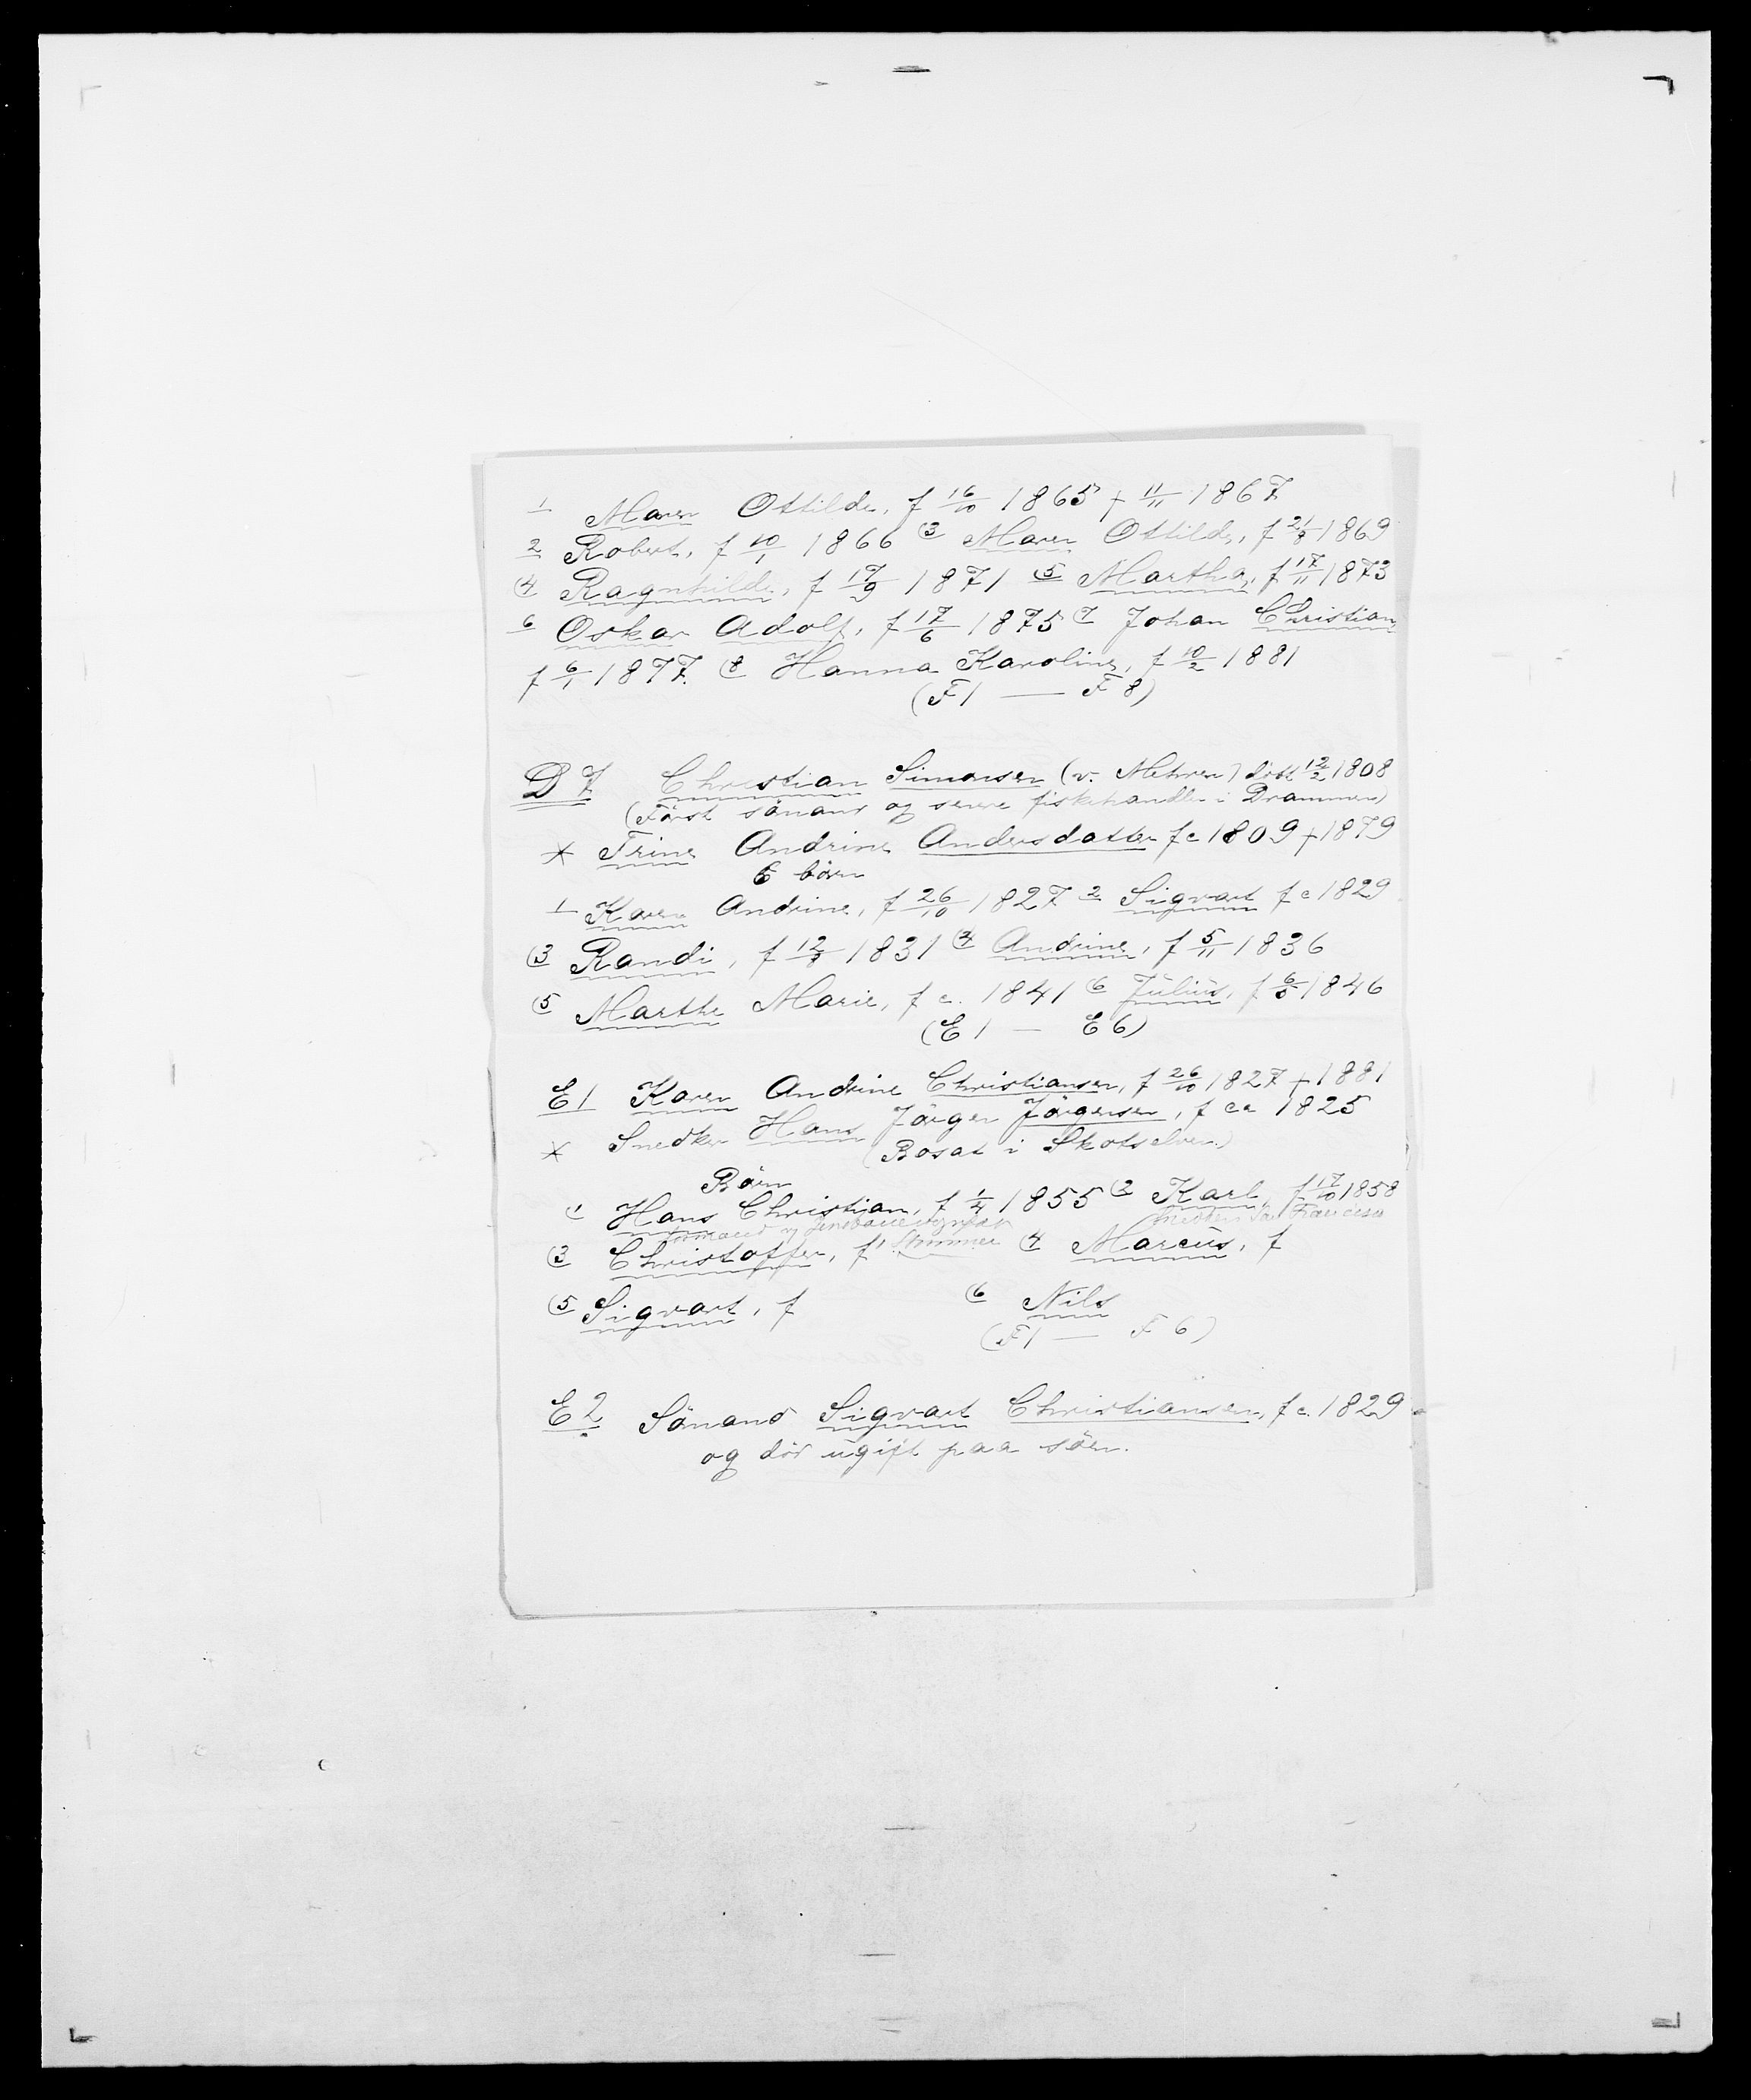 1 Maren Ottilde, f 16/10 1865 + 11/11 1867
2 Robert, f 10/1 1866 (3 Maren Ottilde, f 21/8 1869
(4 Ragnhilde, f 17/9 1871 (5 Martha, f 17/11 1873
6 Oskar Adolf, f 17/6 1875 (7 Johan Christian
f 6/1 1877. (8 Hanna Karoline, f 10/2 1881
(F1 — F8)
D7 Christian Simonsen (v. Mehren) döbt 12/2 1808
(Först sömand og senere fiskehandler i Drammen)
* Trine Andrine Andersdatter f c 1809 + 1879
6 börn
1 Karen Andrine, f 26/10 1827 2 Sigvart f c 1829
(3 Randi, f 12/8 1831 (4 Andrine, f 5/11 1836
(5 Marthe Marie, f c. 1841 (6 Julius, f 6/5 1846
(E1 — E6)
E1 Karen Andrine Christiansen, f 26/10 1827 + 1881
* Snedker Hans Jörgen Jörgensen, f ca 1825
(Bosat i Skotselven)
Börn
(1 Hans Christian, f 1/4 1855 (2 Karl, f 17/10 1858
formand og San Francisco
(3 Christoffer, f (4 Marcus, f
(5 Sigvart, f (6 Nils
(F1 — F6)
E2 Sömand Sigvart Christiansen, f c. 1829
og dör ugift paa söen.